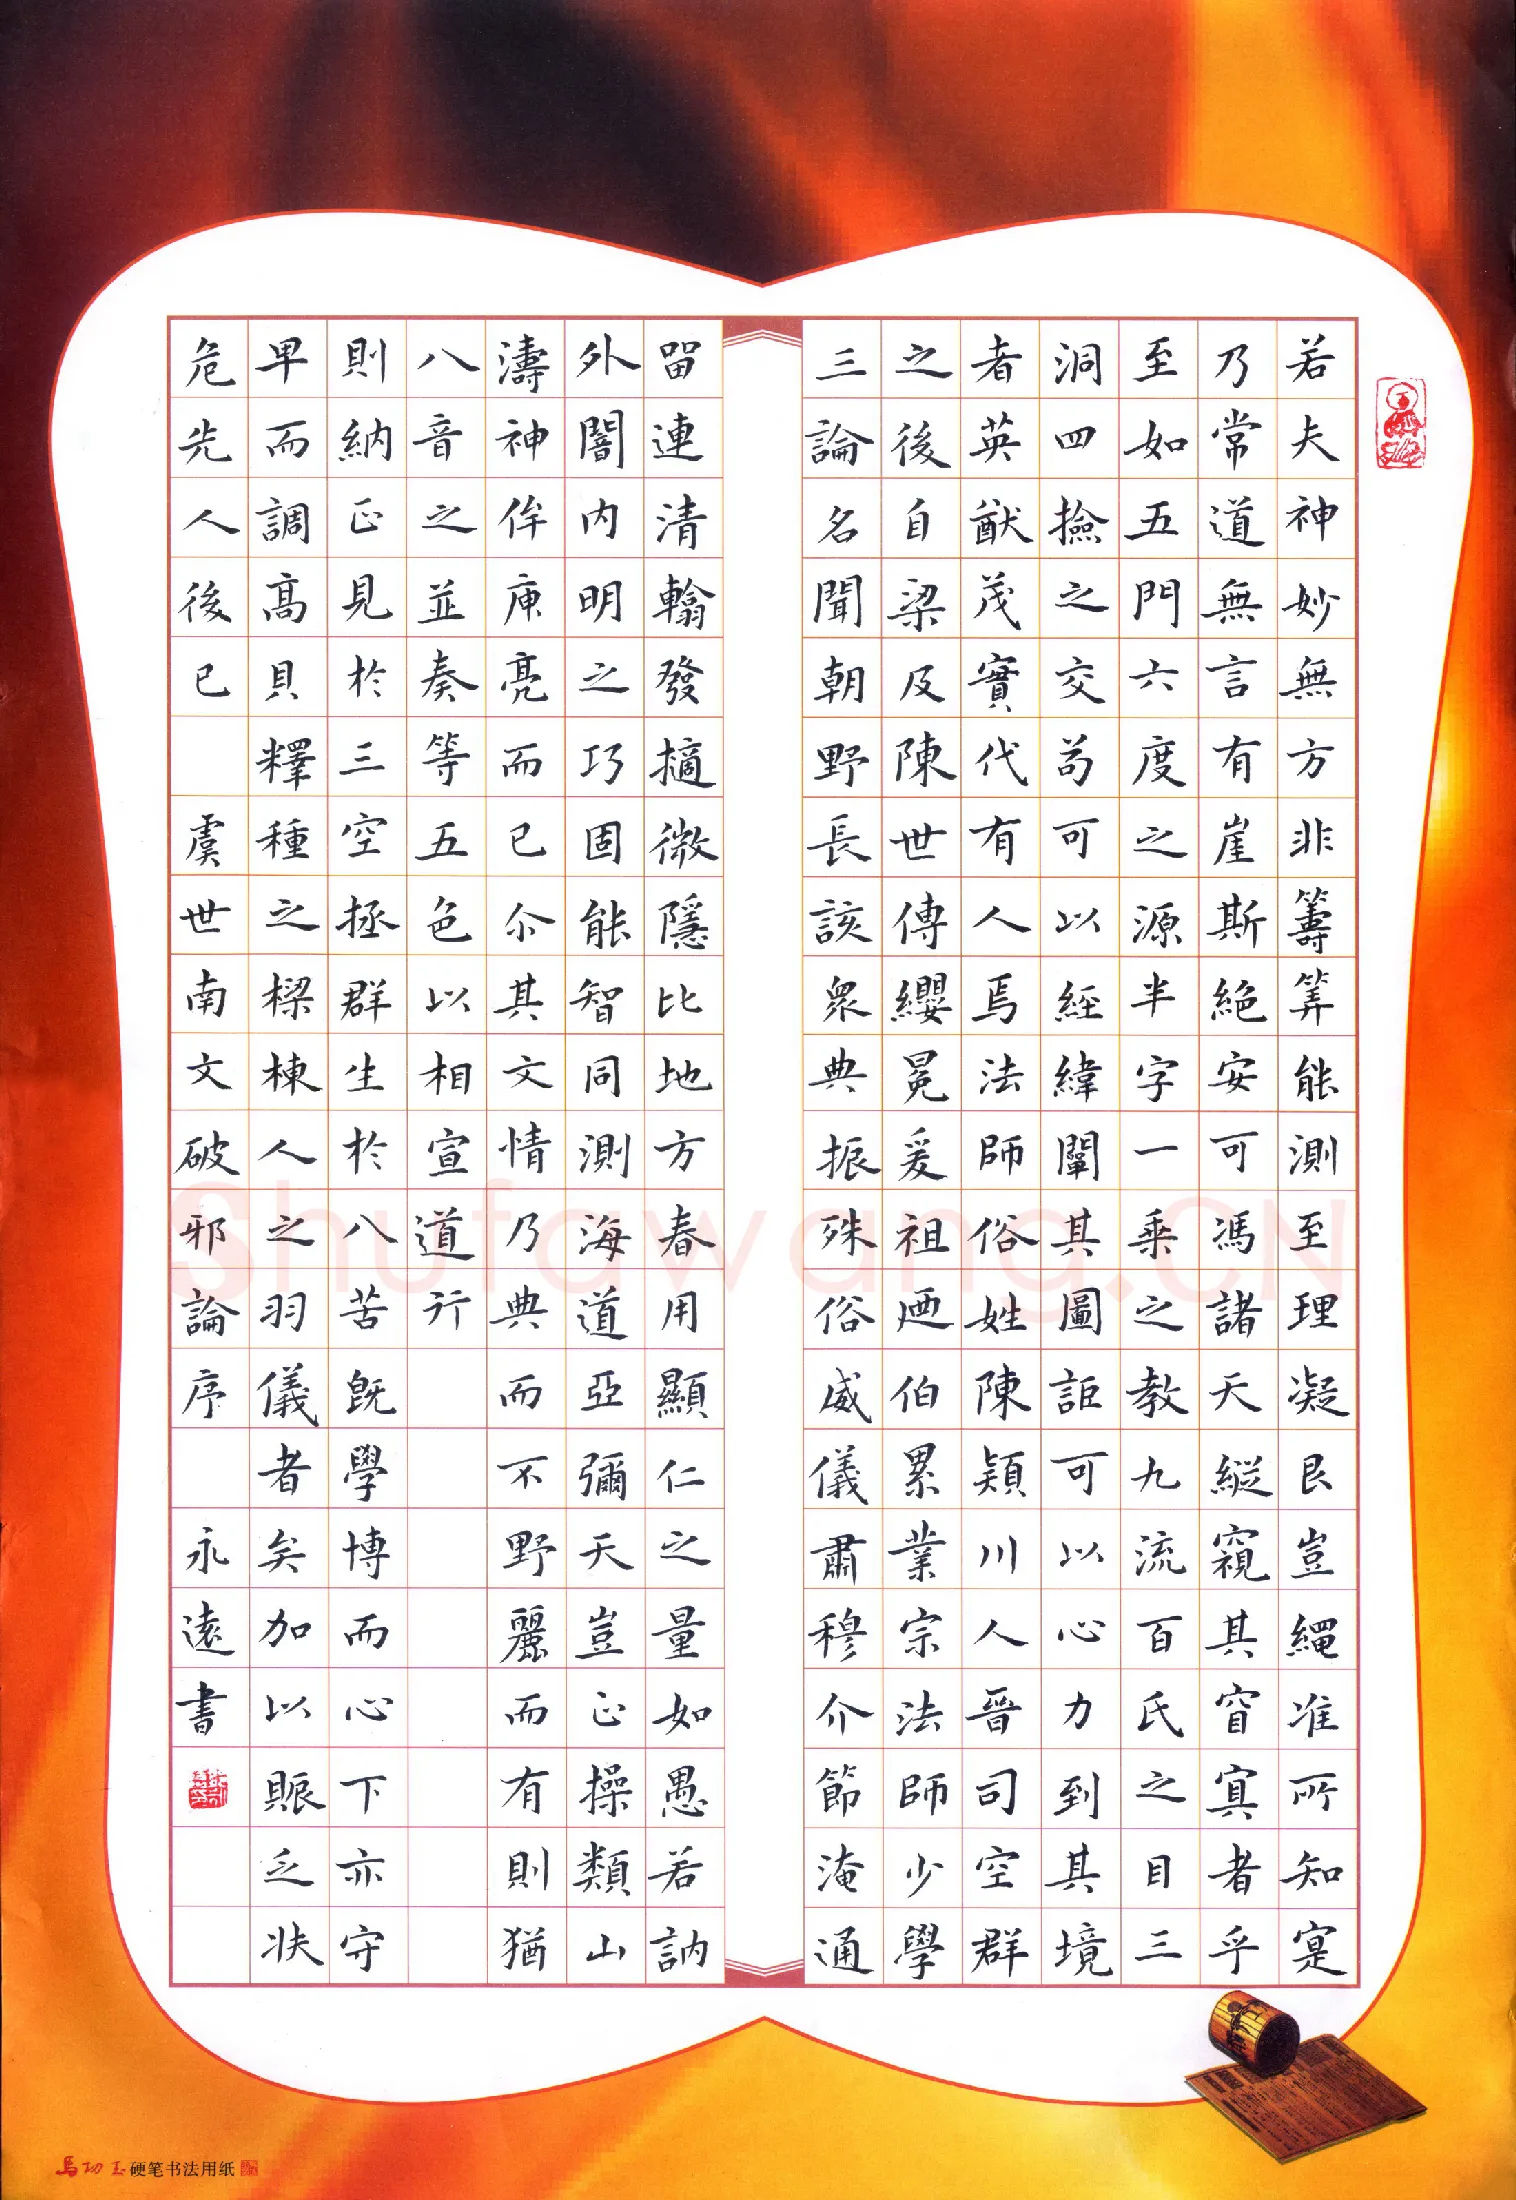 若夫神妙無方非籌筭能測至理凝艮豈繩准所知寔
乃常道無言有崖斯絶安可馮諸天縱窺其窅寘者乎
至如五門六度之源半字一乘之教九流百氏之目三
洞四撿之文苟可以經緯闡其圖詎可以心力到其境
者英猷茂實代有人焉法師俗姓陳潁川人晉司空群
之後自梁及陳世傳纓冕爰祖廼伯累業宗法師少學
三論名聞朝野長該衆典振殊俗威儀肅穆介節淹通
留連清翰發擿微隱比地方春用顯仁之量如愚若訥
外闇内明之巧固能智同測海道亞彌天豈止操類山
濤神侔庾亮而已尒其文情乃典而不野麗而有則猶
八音之並奏等五色以相宣道行
則納正見於三空拯群生於八苦既學博而心下亦守
早而調高貝釋種之樑棟人之羽儀者矣加以賑乏扶
危先人後己 虞世南文破邪論序 永遠書
马功玉硬笔书法用纸
Shufawang.CN